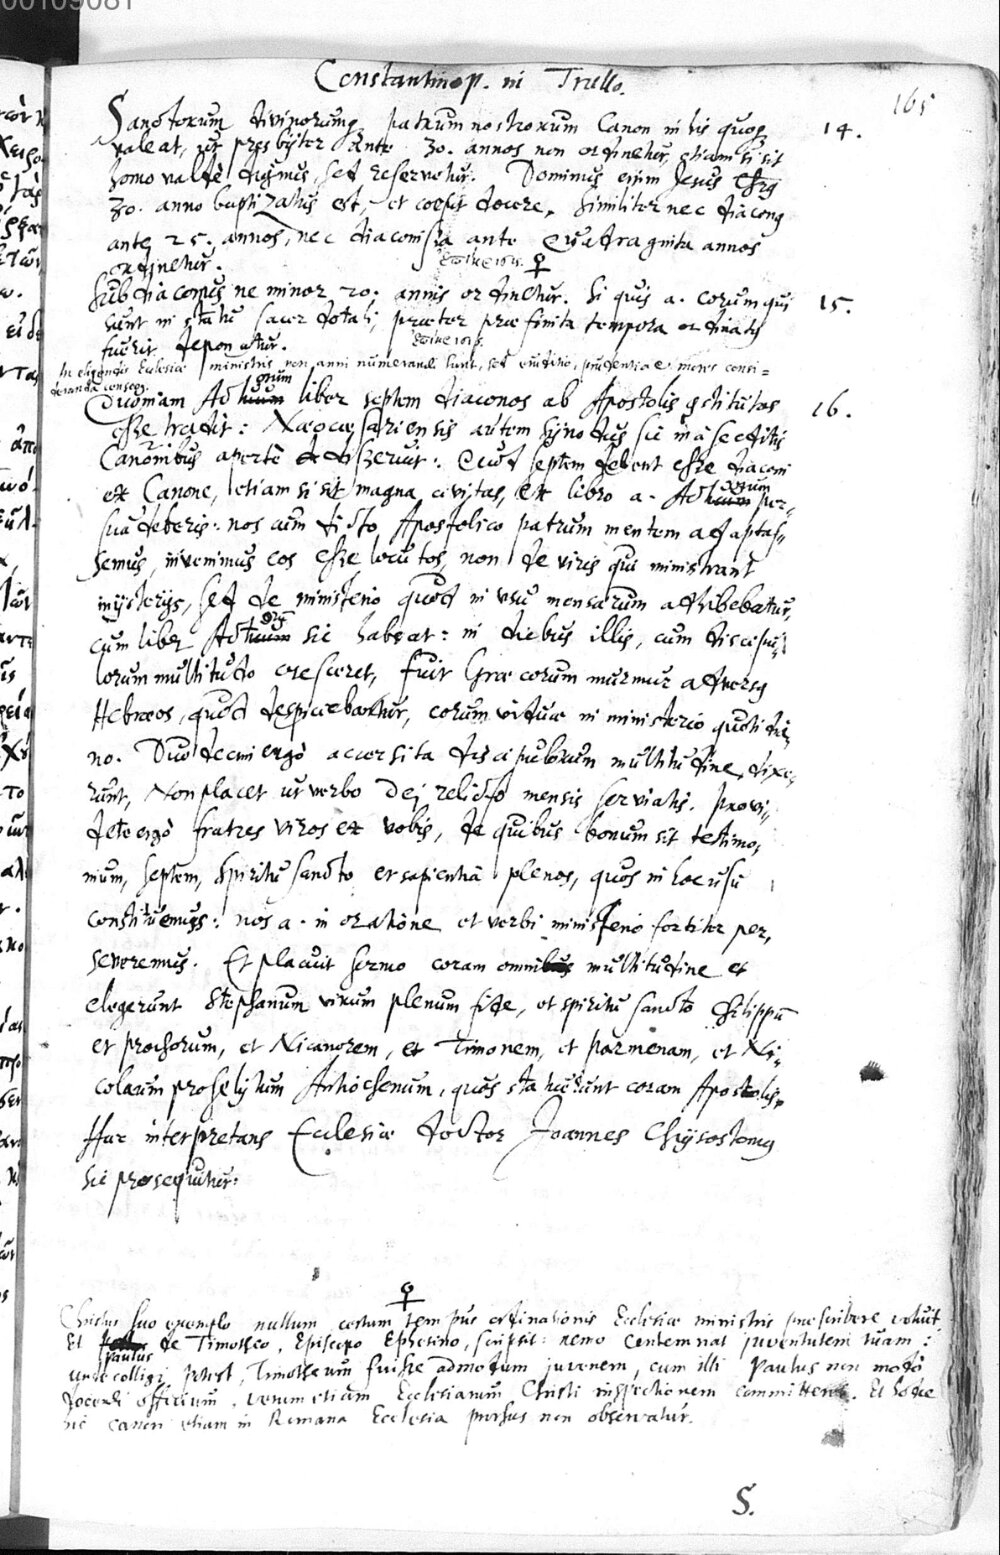 00109081
Constantinop. in Trullo.
165
Sanctorum divinorumq patrum nostrorum Canon in his quoq 14.
valeat, ut presbyter ante 30. annos non ordinetur, etiam si sit
homo valde dignus, sed reservetur. Dominus enim Jesus Chrs
30. anno baptizatus est, et coepit docere. Similiter nec diacong
ante 25. annos, nec diaconissa ante Quadraginta annos
ordinetur.
Subdiaconus ne minor 20. annis ordinetur. Si quis a. eorum qui 15.
sunt in statu sacerdotali, praeter praefinita tempora ordinatg
fuerit deponatur.
In eligendis Ecclesiae ministris non anni numerandi sunt, sed eruditio, prudentia et mores consi=
deranda
Quoniam Actuum orum liber septem diaconos ab Apostolis gstitutos 16.
esse tradit: Neocaesariensis autem Synodus sic in a se editis
Canonibus aperte disseruit: Quod septem debent esse diaconi
ex Canone, etiam si sit magna civitas, ex libro a. Actuum orum per=
suadeberis: nos cum dicto Apostolico patrum mentem adaptas=
semus, invenimus eos esse locutos, non de viris qui ministrant
mysteriis, sed de ministerio quod in usu mensarum adhibebatur,
cum liber Actuum sic habeat: in diebus illis, cum discipu=
lorum multitudo cresceret, fuit Graecorum murmur adversg
Hebraeos, quod despiciebantur, eorum viduae in ministerio quotidia=
no. Duodecim ergo accersita discipulorum multitudine, dixe=
runt, Non placet ut verbo Dei relicto mensis serviatis. Provi=
dete ergo fratres viros ex vobis, de quibus bonum sit testimo=
nium, septem, Spiritu sancto et sapientia plenos, quos in hoc usu
constituemus: nos a. in oratione et verbi ministerio fortiter per=
severemus. Et placuit sermo coram omni multitudine et
elegerunt Stephanum virum plenum fide, et spiritu sancto Philippū
et Prochorum, et Nicanorem, et Timonem, et Parmenam, et Ni=
colaum proselytum Antiochenum, quos statuerunt coram Apostolis.
Hac interpretans Ecclesiae doctor Joannes Chrysostomg
sic prosequitur:
Christus suo exemplo nullum certum tempus ordinationis Ecclesiae ministris praescribere voluit
Et Paulus de Timotheo, Episcopo Ephesino, scripsit: nemo contemnat juventutem tuam:
unde colligi potest, Timotheum fuisse admodum juvenem, cum illi Paulus non modo
docendi officium, verum etiam Ecclesiarum Christi inspectionem committeret. Et hodie
hic canon etiam in Romana Ecclesia prorsus non observatur.
S.